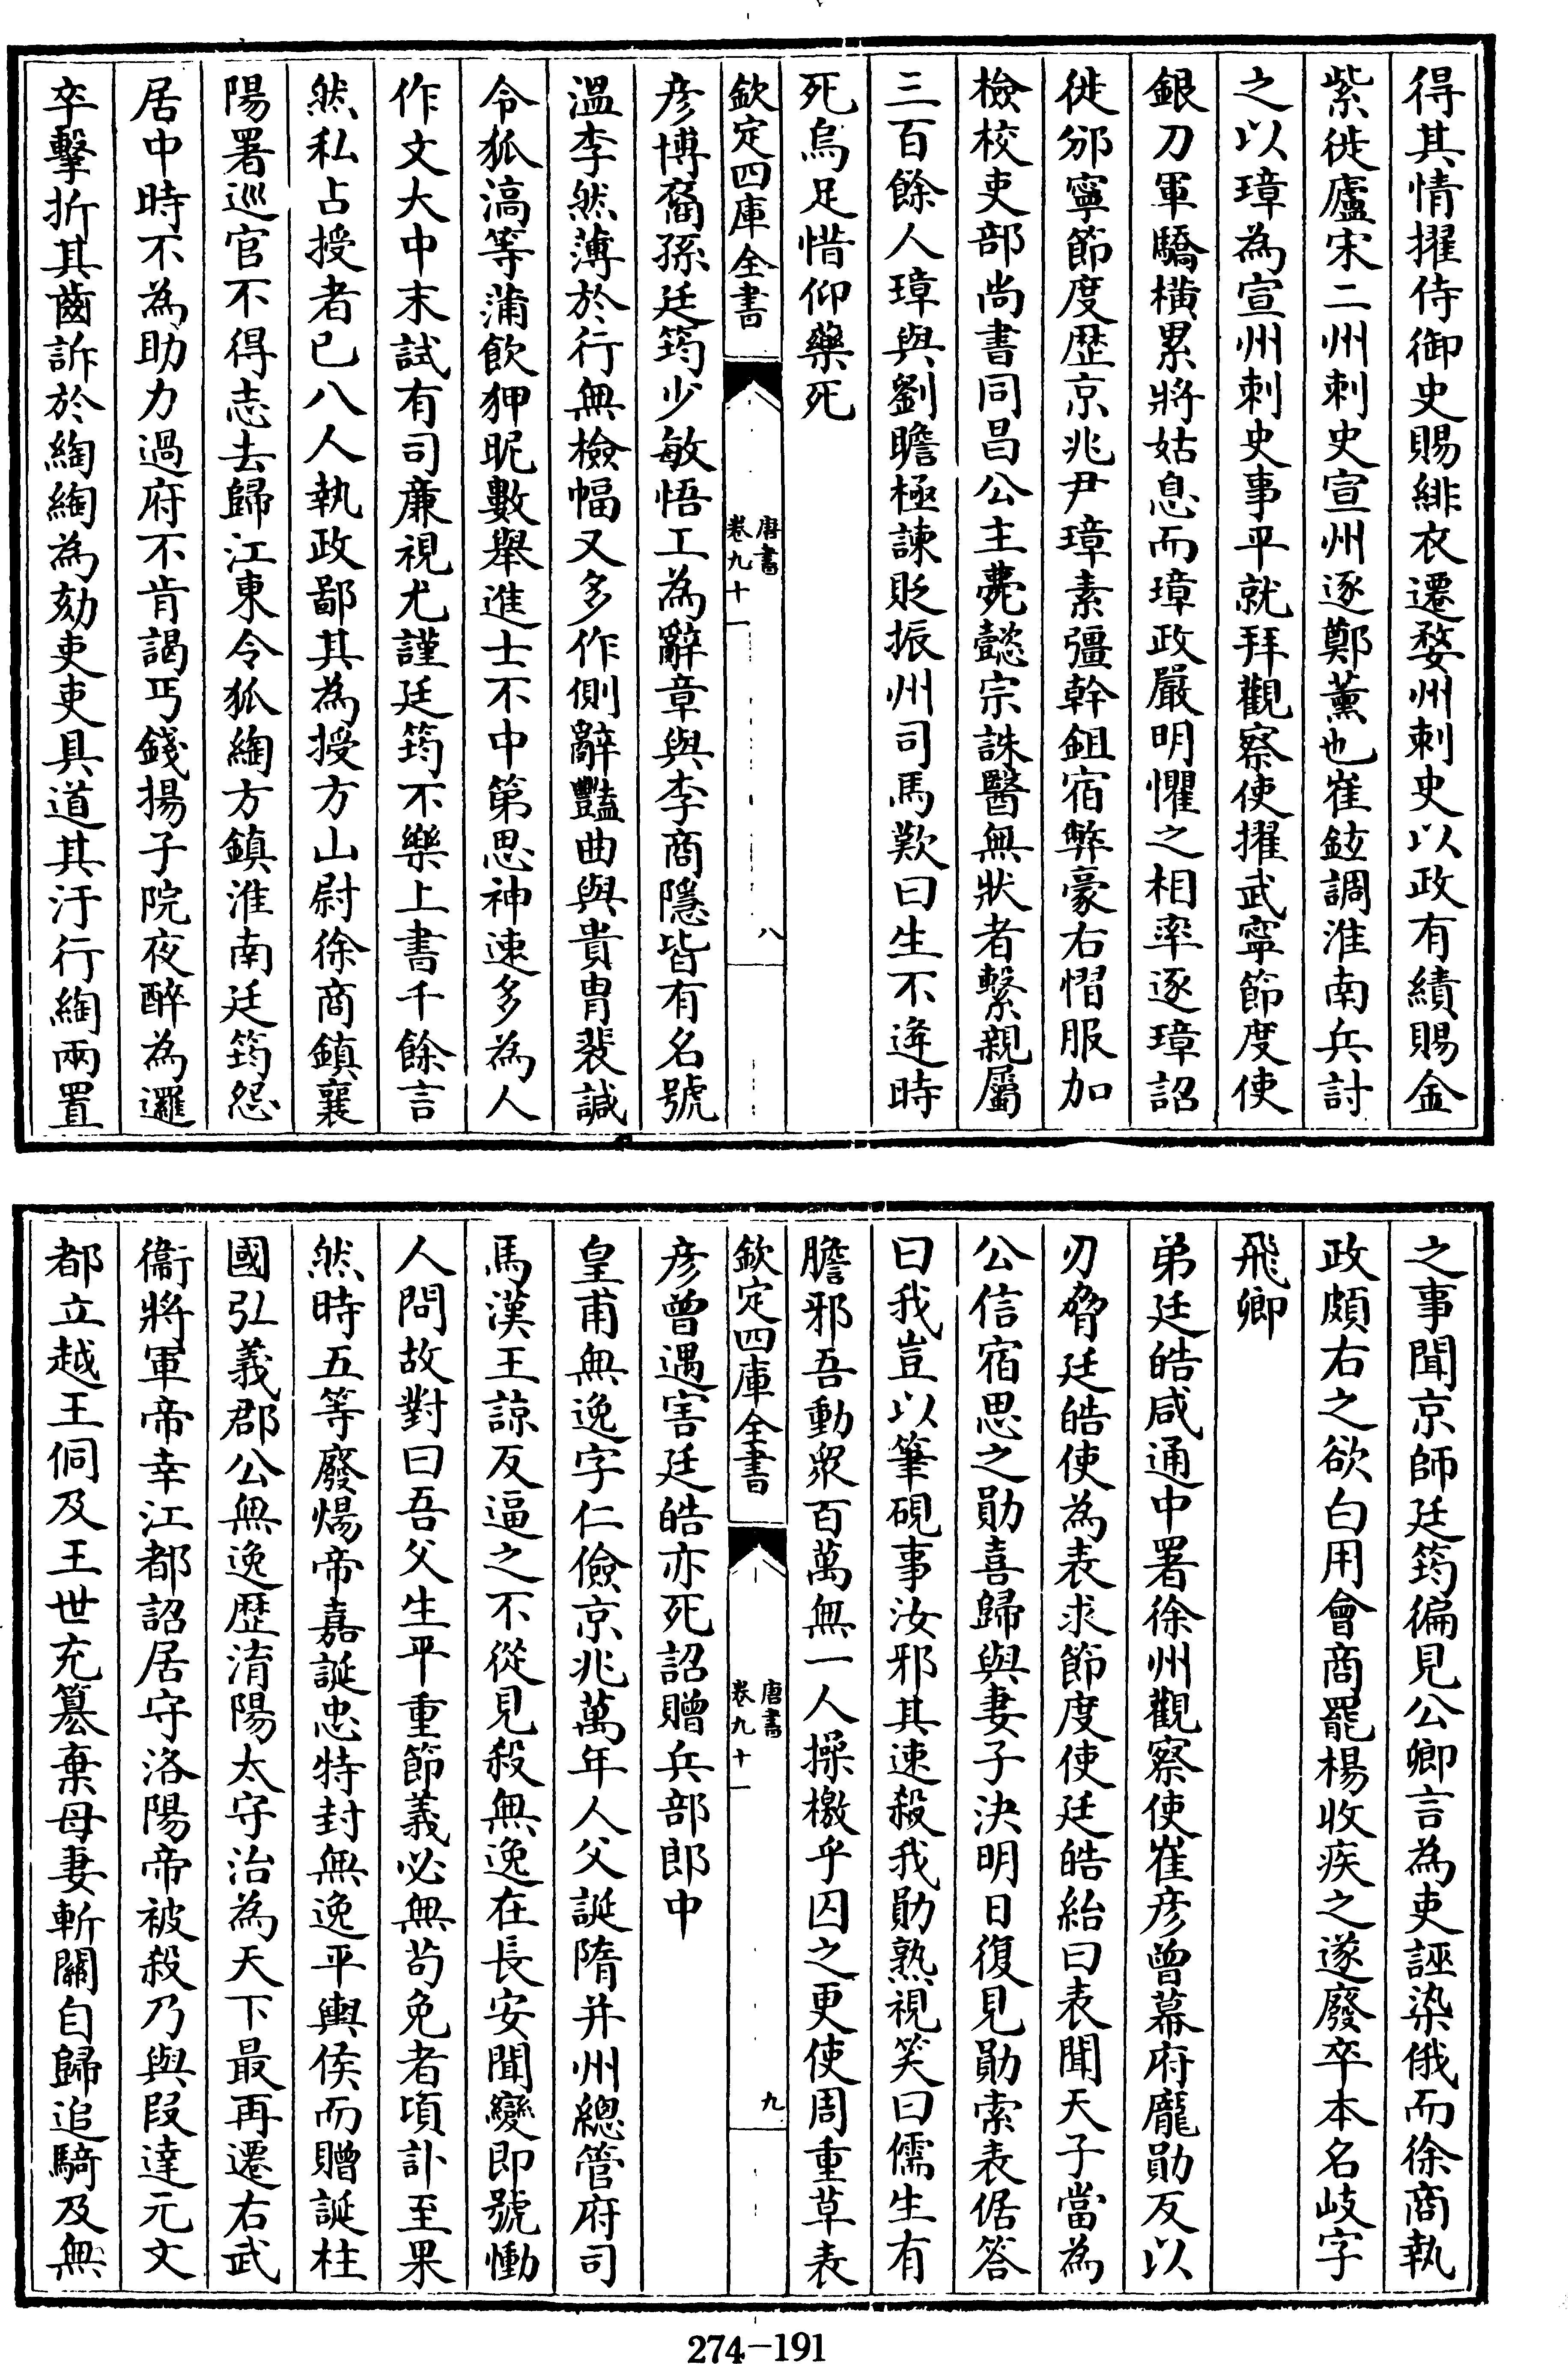 得其情擢侍御史賜緋衣遷婺州刺史以政有績賜金
紫徙廬宋二州刺史宣州逐鄭薰也崔鉉調淮南兵討
之以璋為宣州刺史事平就拜觀察使擢武寧節度使
銀刀軍驕橫累將姑息而璋政嚴明懼之相率逐璋詔
徙邠寧節度歴京兆尹璋素彊幹鉏宿弊豪右慴服加
檢校吏部尚書同昌公主薨懿宗誅醫無狀者繫親屬
三百餘人璋與劉瞻極諫貶振州司馬歎曰生不逄時
死烏足惜仰藥死
欽定四庫全書
唐書
卷九十一
八
彦博裔孫廷筠少敏悟工為辭章與李商隱皆有名號
溫李然薄於行無檢幅又多作側辭豔曲與貴胄裴諴
令狐滈等蒲飲狎昵數舉進士不中第思神速多為人
作文大中末試有司廉視尤謹廷筠不樂上書千餘言
然私占授者已八人執政鄙其為授方山尉徐商鎮襄
陽署巡官不得志去歸江東令狐綯方鎮淮南廷筠怨
居中時不為助力過府不肯謁丐錢揚子院夜醉為邏
卒擊折其齒訴於綯綯為劾吏吏具道其汙行綯兩置
之事聞京師廷筠徧見公卿言為吏誣染俄而徐商執
政頗右之欲白用會商罷楊收疾之遂廢卒本名岐字
飛卿
弟廷皓咸通中署徐州觀察使崔彦曾幕府龐勛反以
刃脅廷皓使為表求節度使廷皓紿曰表聞天子當為
公信宿思之勛喜歸與妻子決明日復見勛索表倨答
曰我豈以筆硯事汝邪其速殺我勛熟視笑曰儒生有
膽邪吾動衆百萬無一人操檄乎囚之更使周重草表
欽定四庫全書
唐書
卷九十一
九
彦曾遇害廷皓亦死詔贈兵部郎中
皇甫無逸字仁儉京兆萬年人父誕隋并州總管府司
馬漢王諒反逼之不從見殺無逸在長安聞變即號慟
人問故對曰吾父生平重節義必無茍免者頃訃至果
然時五等廢煬帝嘉誕忠特封無逸平輿侯而贈誕柱
國弘義郡公無逸歴淯陽太守治為天下最再遷右武
衛將軍帝幸江都詔居守洛陽帝被殺乃與段達元文
都立越王侗及王世充簒棄母妻斬關自歸追騎及無
274-191